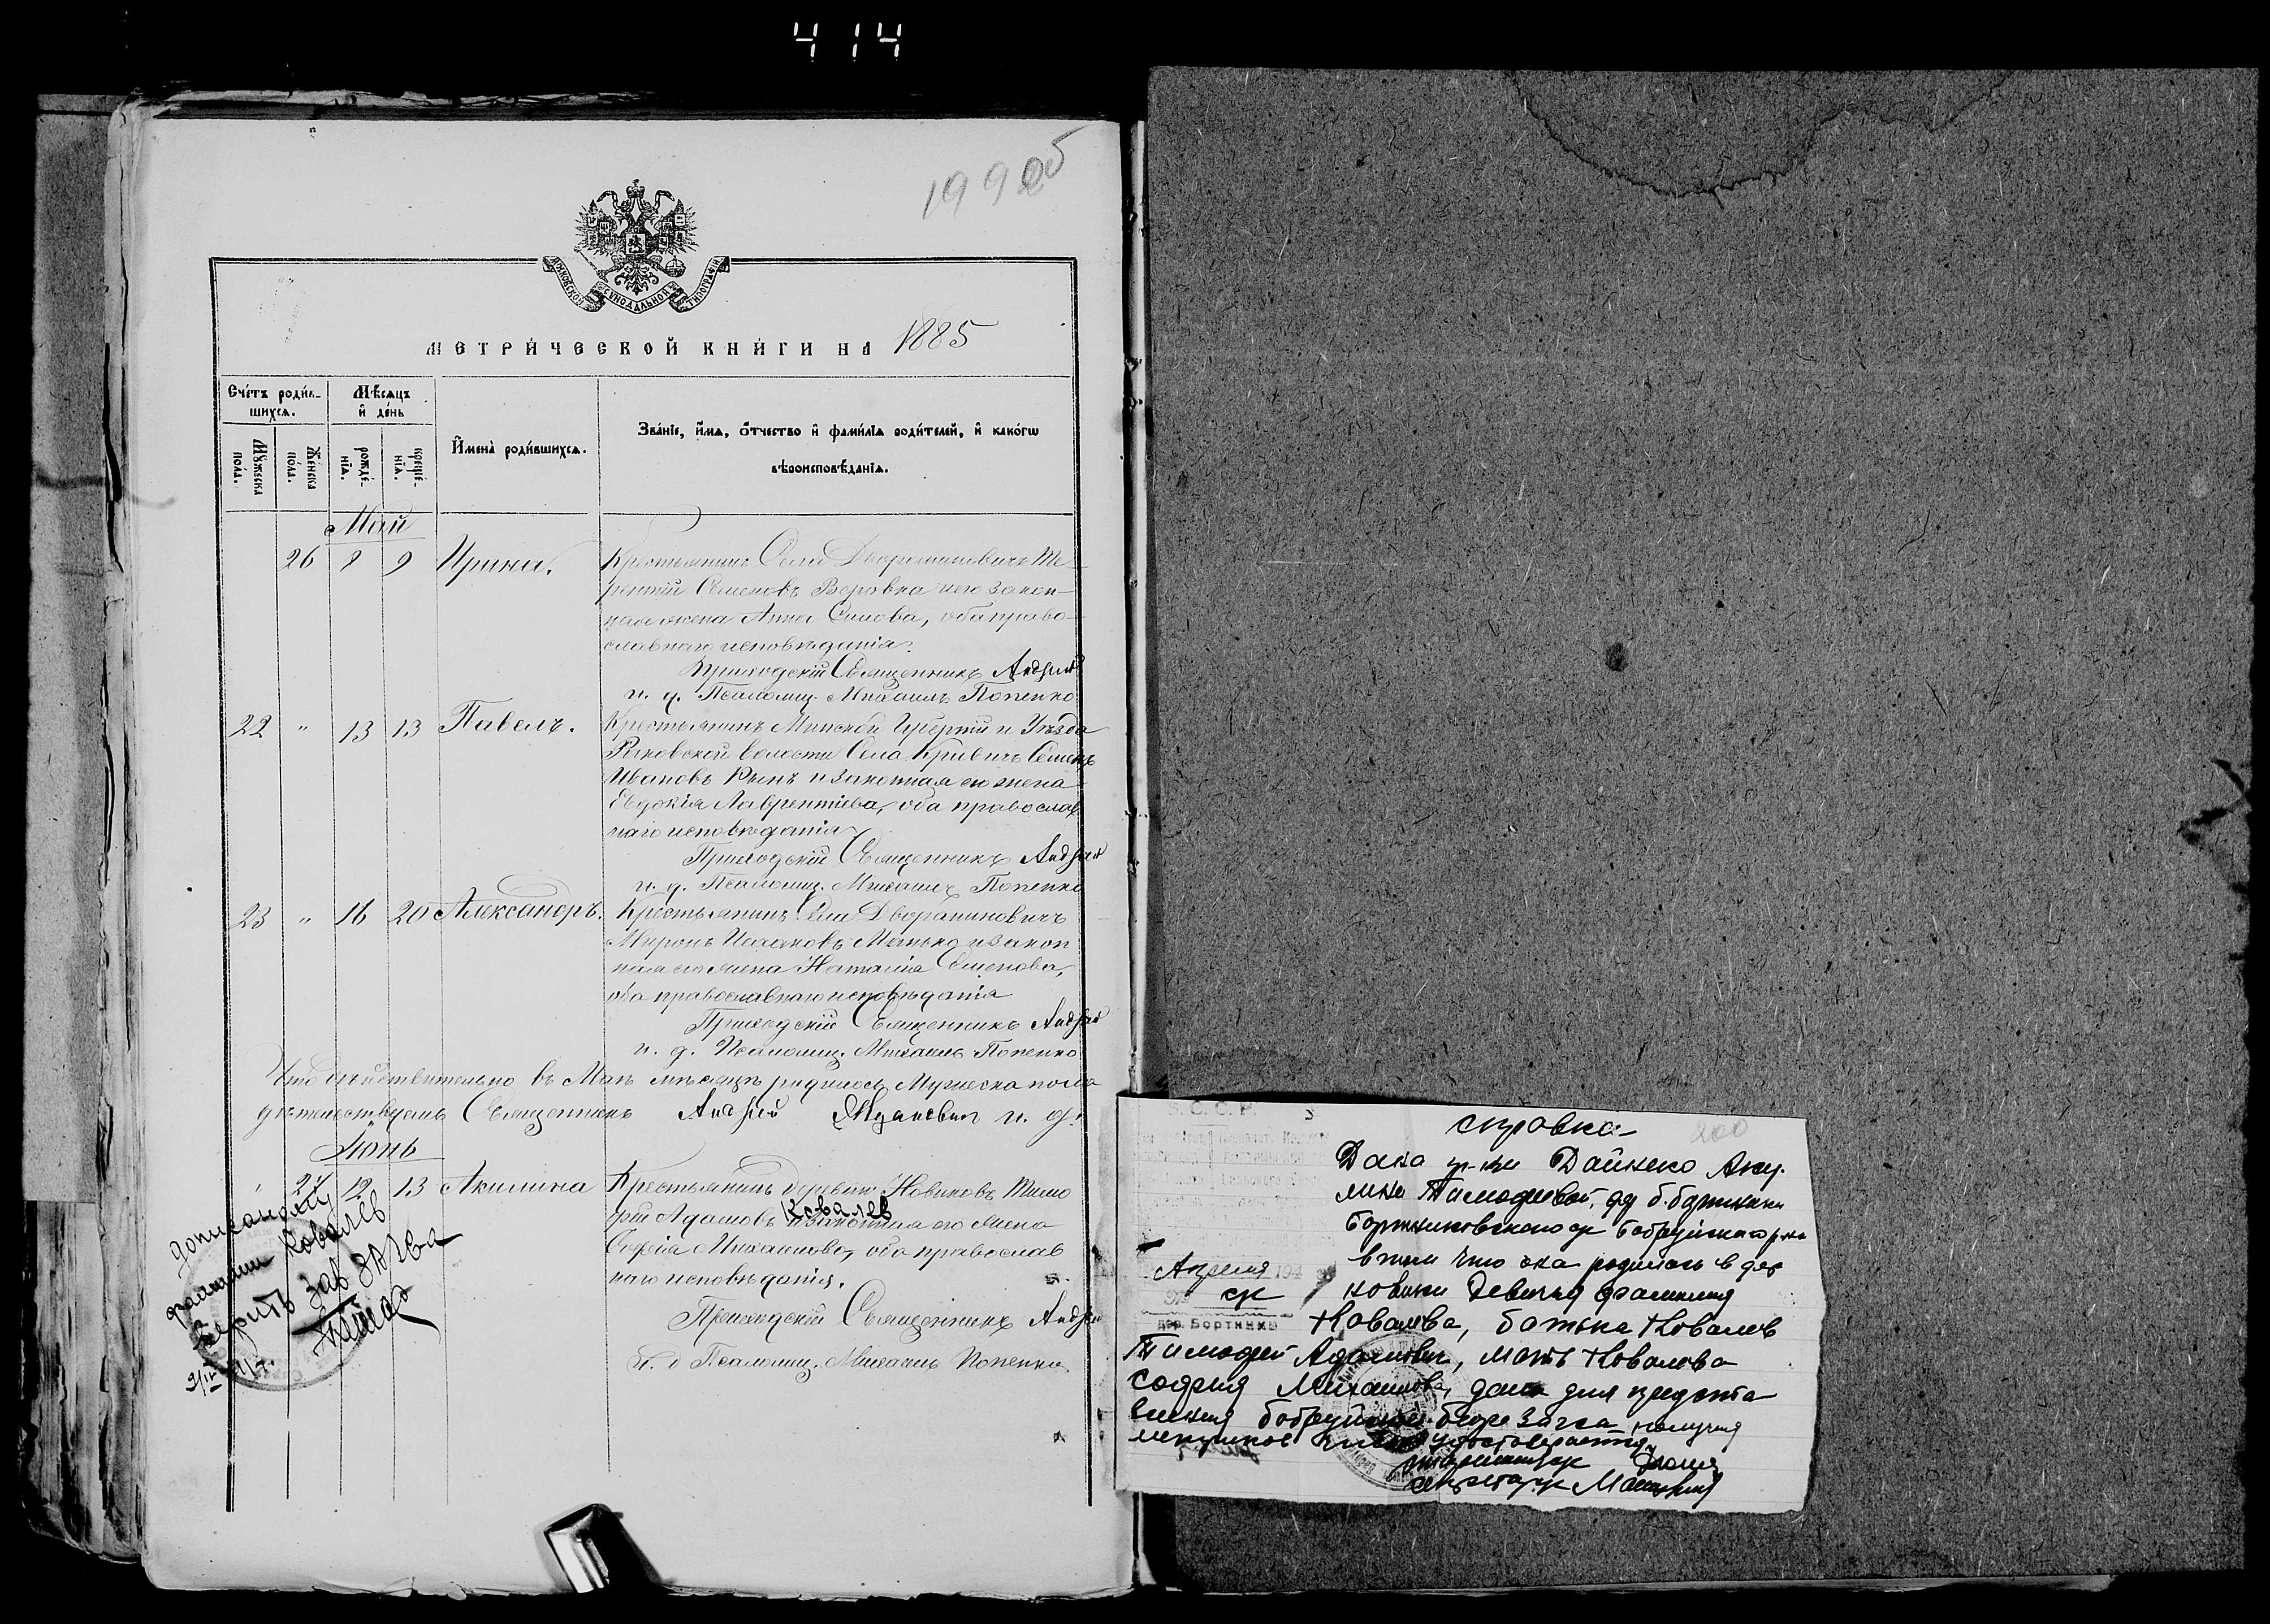 414
199об
МОСКОВСКОЙ СѴНОДАЛЬНОЙ ТИПОГРАФІИ
МЕТРИ́ЧЕСКОЙ КНИ́ГИ НА 1885
Сче́тъ роди́в-
шихся.
Мѣ́сяцъ
и҆ де́нь
Мꙋ́жеска
по́ла.
Же́нска
по́ла.
рожде́-
нїѧ.
креще́-
нїѧ.
И҆мена̀ роди́вшихсѧ.
Зва́нїе, и҆́мѧ, ѻ҆́тчество и҆ фами́лїѧ роди́телей, и҆ како́гѡ
вѣроисповѣ́данїѧ.
Май
26 8 9 Ирина. Крестьянинъ Села Дворяниновичъ Те-
рентій Семеновъ Веровка и его закон-
ная жена Анна Симова, оба право-
славнаго исповѣданія.
Приходскій Священникъ Андрей
и. д. Псаломщ. Михаилъ Попенко
22 " 13 13 Павелъ. Крестьянинъ Минской Губерніи и Уѣзда
волости Села Кривичъ Семенъ
Ивановъ и законная его жена
Евдокія Лаврентіева, оба православ
наго исповѣданія
Приходскій Священникъ Андрей
и. д. Псаломщ. Михаилъ Попенко
23 " 16 20 Александръ. Крестьянинъ Села Дворяниновичъ
Миронъ Исааковъ Манько и закон
ная его жена Наталія Семенова,
оба православнаго исповѣданія
Приходскій Священникъ Андрей
и. д. Псаломщ. Михаилъ Попенко
Что дѣйствительно въ Маѣ мѣсяцѣ родилось Мужеска пола
дѣтельствуемъ Священникъ Андрей и. д.
Іюнь
27 12 13 Акилина Крестьянинъ деревни Новиковъ Тимо
фей Адамовъ Ковалев и законная его жена
Софія Михаилова, оба православ
наго исповѣданія.
Приходскій Священникъ Андрей
И. д Псаломщ. Михаилъ Попенко
дописаному
фамилии Ковалев
верить Зав ЗАГСа
9/IV 41 г.
С. С. Р.
справка
200
Дана гр-ки Дайнеко Аку-
лине Тимофеевой, дер б. бортники
Бортниковского с/с Бобруйского р-на
в том что она родилась в дер
Апреля 194
новики Девичья фамилия
дер. Бортники
Ковалева, батька Ковалев
Тимофей Адамович, мать Ковалева
София Михаиловна, дана для предста
вления Бобруйское бюро Загса получия
секретарь